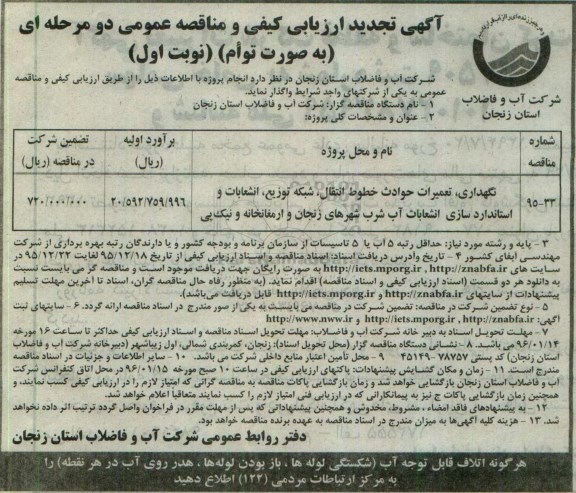 آگهی تجدید ارزیابی کیفی و مناقصه عمومی دو مرحله ای
(به صورت توأم) (نوبت اول)
شرکت آب و فاضلاب
استان زنجان
شرکت آب و فاضلاب استان زنجان در نظر دارد انجام پروژه با اطلاعات ذیل را از طریق ارزیابی کیفی و مناقصه
عمومی به یکی از شرکتهای واجد شرایط واگذار نماید.
۱ - نام دستگاه مناقصه گزار: شرکت آب و فاضلاب استان زنجان
۲ - عنوان و مشخصات کلی پروژه:
شماره مناقصه
نام و محل پروژه
برآورد اولیه (ریال)
تضمین شرکت در مناقصه (ریال)
۹۵-۳۳
نگهداری، تعمیرات حوادث خطوط انتقال، شبکه توزیع، انشعابات و
استاندارد سازی انشعابات آب شرب شهرهای زنجان و ارمغانخانه و نیک‌پی
۲۰/۵۹۲/۷۵۹/۹۹۶
۷۲۰/۰۰۰/۰۰۰
۳ - پایه و رشته مورد نیاز: حداقل رتبه ۵ آب یا ۵ تاسیسات از سازمان برنامه و بودجه کشور و یا دارندگان رتبه بهره برداری از شرکت
مهندسی آبفای کشور ۴ - تاریخ وآدرس دریافت اسناد: اسناد مناقصه و اسناد ارزیابی کیفی از تاریخ ۹۵/۱۲/۱۸ لغایت ۹۵/۱۲/۲۲ در
سایت های http://iets.mporg.ir , http://znabfa.ir به صورت رایگان جهت دریافت موجود است و مناقصه گر می بایست نسبت
به دانلود هر دو قسمت (اسناد ارزیابی کیفی و اسناد مناقصه) اقدام نماید. (به منظور رفاه حال مناقصه گران، اسناد تا آخرین مهلت تسلیم
پیشنهادات از سایتهای http://znabfa.ir و http://iets.mporg.ir قابل دریافت می‌باشد).
۵ - نوع تضمین شرکت در مناقصه: تضمین شرکت در مناقصه می بایست به یکی از صور مندرج در اسناد مناقصه ارائه گردد. ۶ - سایتهای ثبت
آگهی: http://znabfa.ir , http://iets.mporg.ir و http://www.nww.ir
۷ - مهلت تحویل اسناد به دبیر خانه شرکت آب و فاضلاب: مهلت تحویل اسناد مناقصه و اسناد ارزیابی کیفی حداکثر تا ساعت ۱۶ مورخه
۹۶/۰۱/۱۴ می باشد. ۸ - نشانی دستگاه مناقصه گزار (محل تحویل اسناد): زنجان، کمربندی شمالی، اول زیباشهر (دبیرخانه شرکت آب و فاضلاب
استان زنجان) کد پستی ۷۸۷۵۷-۴۵۱۴۹ ۹ - محل تأمین اعتبار منابع داخلی شرکت می باشد. ۱۰ - سایر اطلاعات و جزئیات در اسناد مناقصه
مندرج است. ۱۱ - زمان و مکان گشایش پیشنهادات: پاکتهای ارزیابی کیفی در ساعت ۱۰ صبح مورخه ۹۶/۰۱/۱۵ در محل اتاق کنفرانس شرکت
آب و فاضلاب استان زنجان بازگشایی خواهد شد و زمان بازگشایی پاکات مناقصه به مناقصه گرانی که امتیاز لازم را در ارزیابی کیفی کسب نمایند، و
همچنین زمان بازگشایی پاکات ج نیز به پیمانکارانی که در ارزیابی فنی امتیاز لازم را کسب نمایند متعاقبا اعلام خواهد شد.
۱۲ - به پیشنهادهای فاقد امضاء ، مشروط، مخدوش و همچنین پیشنهاداتی که پس از مهلت مقرر در فراخوان واصل گردد ترتیب اثر داده نخواهد
شد. ۱۳ - هزینه کلیه آگهی‌ها به میزان مندرج در اسناد مناقصه به عهده برنده مناقصه خواهد بود.
دفتر روابط عمومی شرکت آب و فاضلاب استان زنجان
هرگونه اتلاف قابل توجه آب (شکستگی لوله ها ، باز بودن لوله‌ها ، هدر روی آب در هر نقطه) را
به مرکز ارتباطات مردمی (۱۲۲) اطلاع دهید